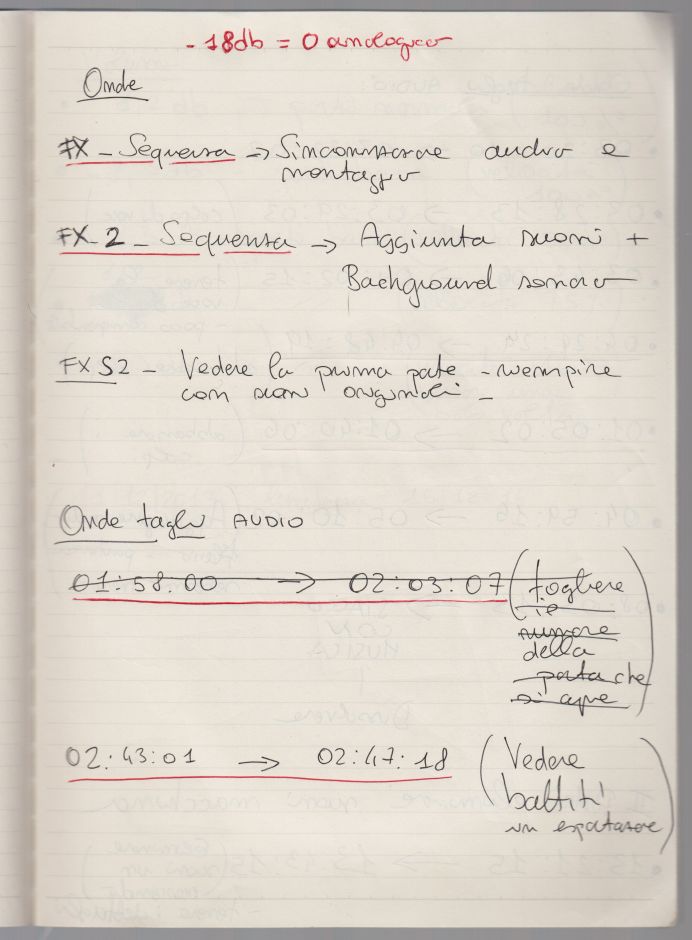 - 18db = 0 analogico
Onde
FX - Sequenza -> Sincronizzare audio e
montaggio
FX - 2 - Sequenza -> Aggiunta suoni +
Background sonoro
FX S2 - Vedere la prima pate - riempire
con suoni originali -
Onde tagli AUDIO
01:58:00 -> 02:03:07 (togliere
il
rumore
della
porta che
si apre)
02:43:01 -> 02:47:18 (Vedere
battiti
in esportazione)